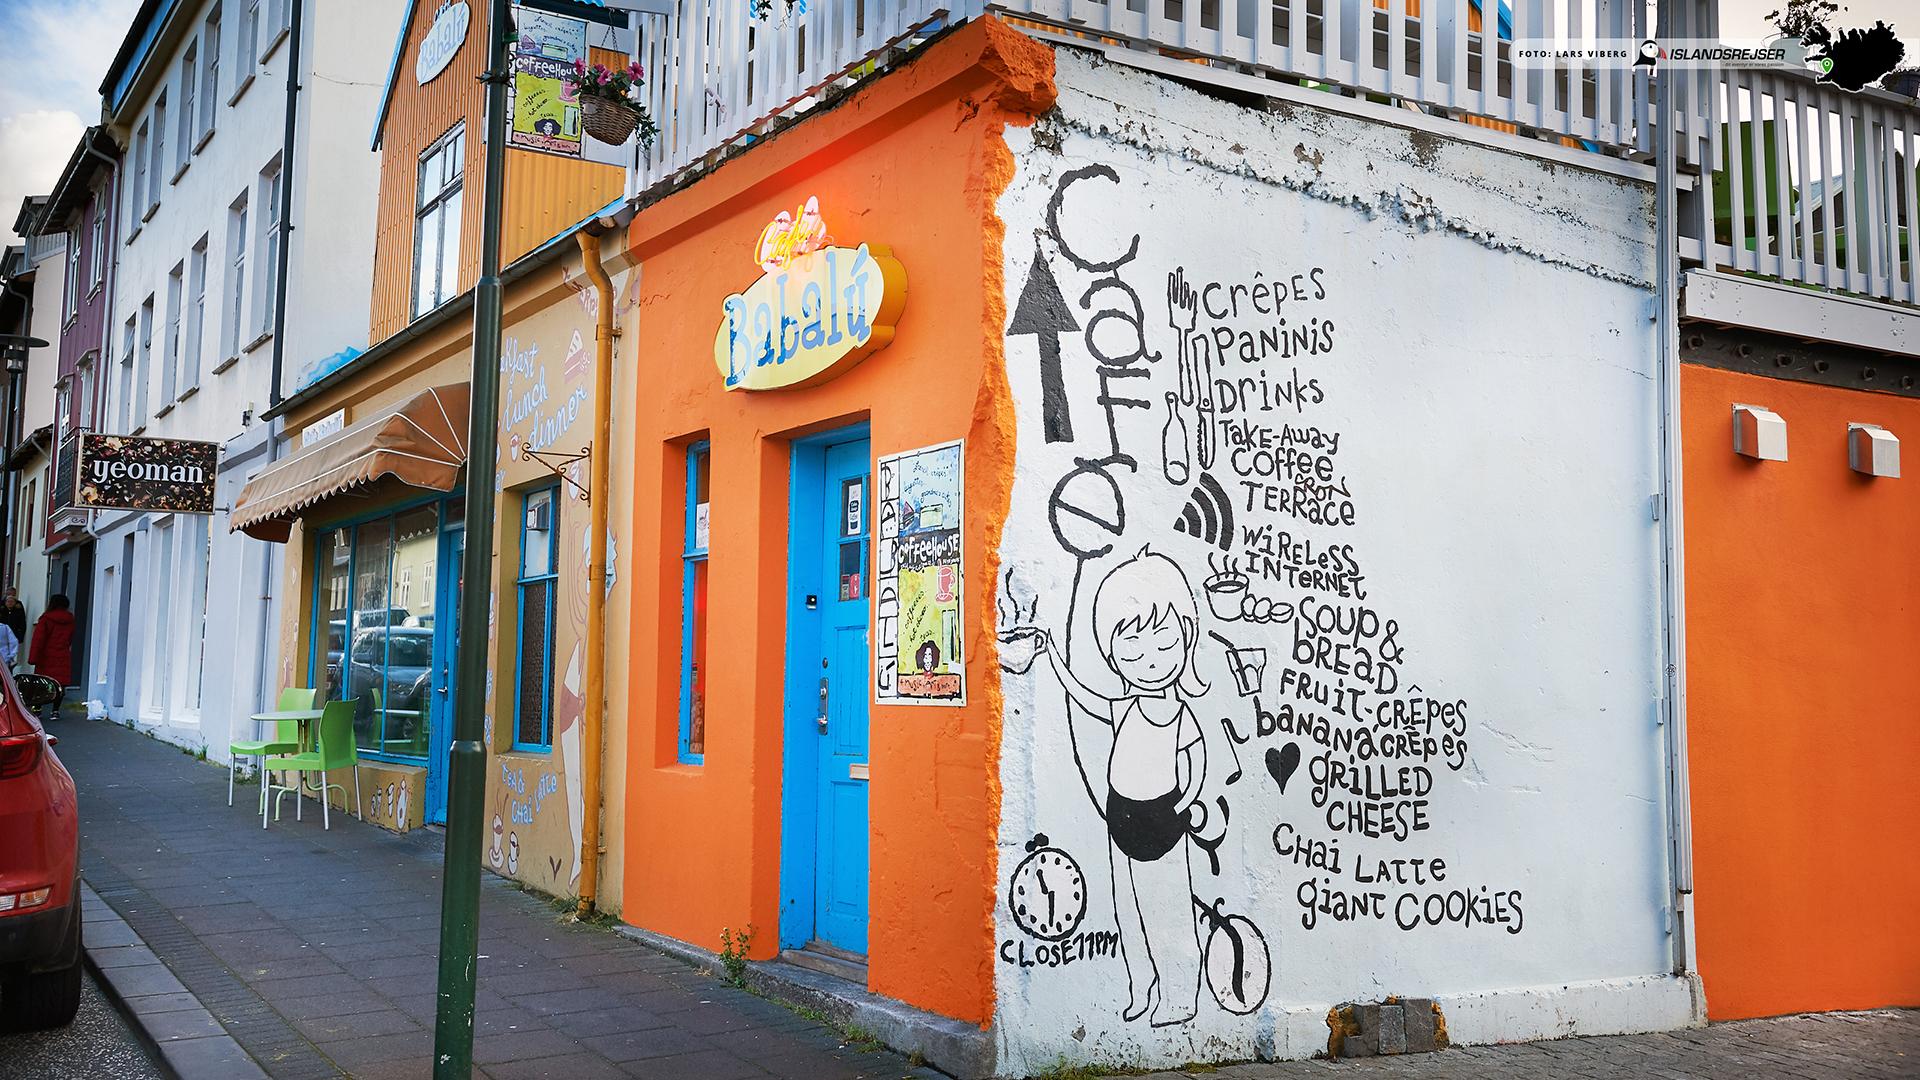 FOTO: LARS VIBERG
ISLANDSREJSER
Babalú
COFFEEHOUSE
Café
Babalú
yeoman
lunch
dinner
CHAi LATTE
BABALÚ
COFFEEHOUSE
CaFe
CRÊPES
PANINIS
DRiNKS
TAKE-AWAY
COFFEE
ON
TERRACE
WiRELESS
INTERNET
SOUP &
BREAD
FRUiT-CRÊPES
BANANACRÊPES
GRiLLED
CHEESE
CHai LATTE
giaNT COOKiES
CLOSE 11PM